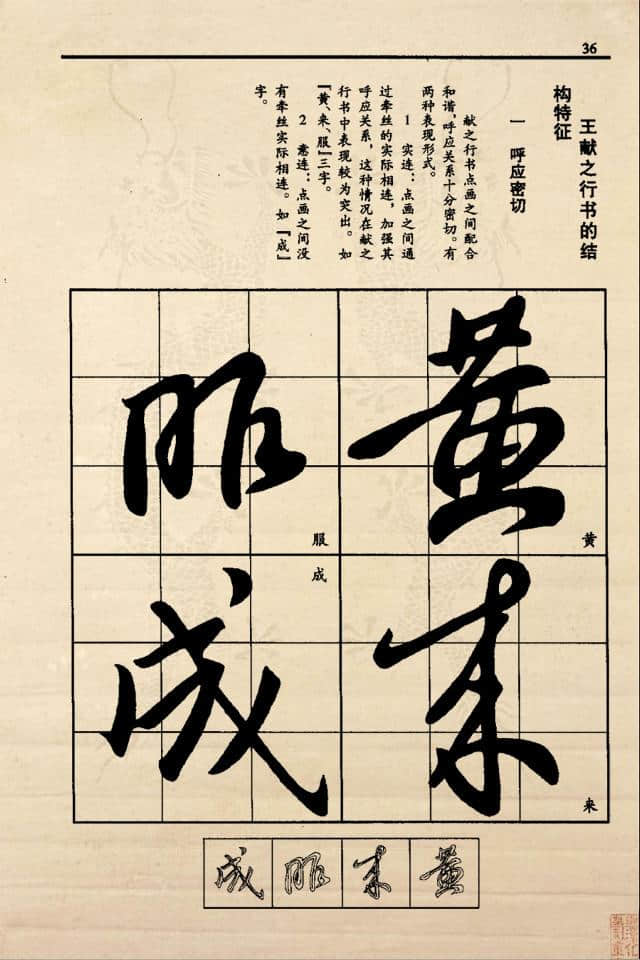 36
王献之行书的结
构特征
一 呼应密切
献之行书点画之间配合
和谐，呼应关系十分密切。有
两种表现形式。
1 实连：点画之间通
过牵丝的实际相连，加强其
呼应关系，这种情况在献之
行书中表现较为突出。如
『黄、来、服』三字。
2 意连：点画之间没
有牵丝实际相连。如『成』
字。
黄
黄
来
来
服
服
成
成
黄
来
服
成